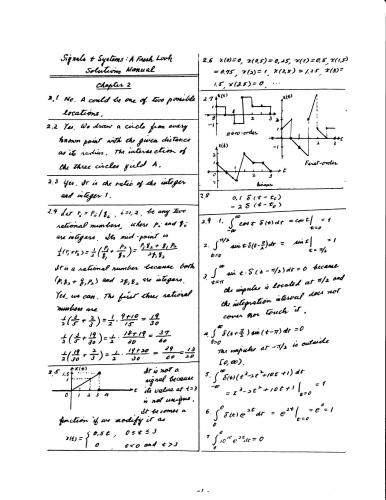 Signals & Systems: A Fresh Look
Solutions Manual
Chapter 2
2.1 No. A could be one of two possible
locations.
2.2 Yes. We draw a circle from every
known point with the given distance
as its radius. The intersection of
the three circles yield A.
2.3 Yes. It is the ratio of the integer
and integer 1.
2.4 Let r_i = p_i/q_i, i=1,2, be any two
rational numbers, where p_i and q_i
are integers. Its mid-point is
1/2(r_1+r_2) = 1/2(p_1/q_1 + p_2/q_2) = (p_1q_2+q_1p_2)/(2q_1q_2)
It is a rational number because both
(p_1q_2+q_1p_2) and 2q_1q_2 are integers.
Yes, we can. The first three rational
numbers are
1/2(3/5 + 2/3) = 1/2 · (9+10)/15 = 19/30
1/2(3/5 + 19/30) = 1/2 · (18+19)/30 = 37/60
1/2(19/30 + 2/3) = 1/2 · (19+20)/30 = 39/60 = 13/20
2.5 x(t)
1.5
1
0 1 2 3 t
It is not a
signal because
its value at t=3
is not unique.
It becomes a
function if we modify it as
x(t) = { 0.5t, 0≤t≤3
0 t<0 and t>3
2.6 x(0)=0, x(0.5)=0.25, x(1)=0.5, x(1.5)
=0.75, x(2)=1, x(2.5)=1.25, x(3)=
1.5, x(3.5)=0
2.7 x(t)
zero-order
x(t)
First-order
x(t)
linear
2.8 0.1 δ(t-t_0)
-2 δ(t-t_0)
2.9 1. ∫ cos t δ(t) dt = cos t | = 1
t=0
2. ∫ sin t δ(t-π/2) dt = sin t | = 1
3. ∫ sin t · δ(t-π/2) dt = 0 because
the impulse is located at π/2 and
the integration interval does not
cover nor touch it.
4. ∫ δ(t+π/2) sin(t-π) dt = 0
The impulse at -π/2 is outside
[0,∞).
5. ∫ δ(t)(t³-2t²+10t+1) dt
= t³-2t²+10t+1 | = 1
t=0
6. ∫ δ(t) e^{2t} dt = e^{2t} | = e^0 = 1
t=0
7. dt = 0
-1-